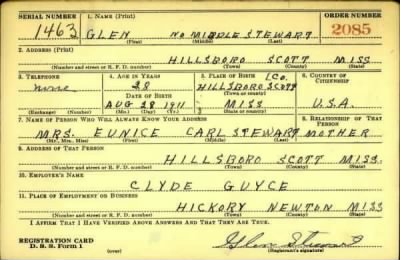 SERIAL NUMBER 1. NAME (Print) ORDER NUMBER
1463 GLEN NO MIDDLE STEWART 2085
(First) (Middle) (Last)
2. ADDRESS (Print)
HILLSBORO SCOTT MISS
(Number and street or R. F. D. number) (Town) (County) (State)
3. TELEPHONE 4. AGE IN YEARS 5. PLACE OF BIRTH 6. COUNTRY OF CITIZENSHIP
none 28 HILLSBORO SCOTT CO.
DATE OF BIRTH (Town or county)
AUG 28 1911 MISS U.S.A.
(Exchange) (Number) (Mo.) (Day) (Yr.) (State or country)
7. NAME OF PERSON WHO WILL ALWAYS KNOW YOUR ADDRESS 8. RELATIONSHIP OF THAT PERSON
MRS. EUNICE CARL STEWART MOTHER
(Mr., Mrs., Miss) (First) (Middle) (Last)
9. ADDRESS OF THAT PERSON
HILLSBORO SCOTT MISS.
(Number and street or R. F. D. number) (Town) (County) (State)
10. EMPLOYER'S NAME
CLYDE GUYCE
11. PLACE OF EMPLOYMENT OR BUSINESS
HICKORY NEWTON MISS
(Number and street or R. F. D. number) (Town) (County) (State)
I AFFIRM THAT I HAVE VERIFIED ABOVE ANSWERS AND THAT THEY ARE TRUE.
REGISTRATION CARD
D. S. S. Form 1 (over) Glen Stewart
(Registrant's signature)